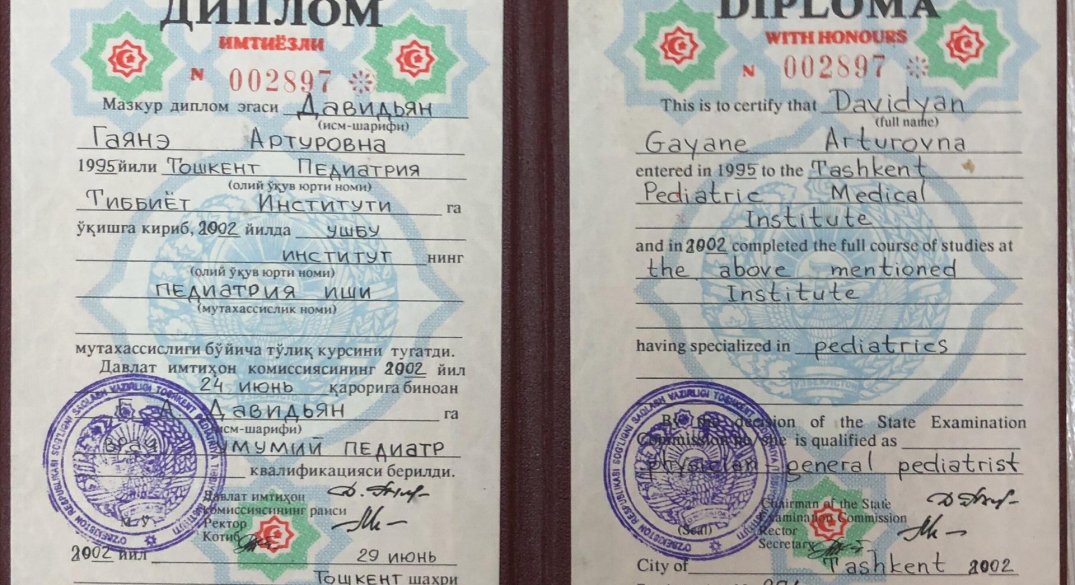 ДИПЛОМ
ИМТИЁЗЛИ
N 002897
Мазкур диплом эгаси Давидьян
(исм-шарифи)
Гаянэ Артуровна
1995 йили Тошкент Педиатрия
(олий ўқув юрти номи)
Тиббиёт Институти га
ўқишга кириб, 2002 йилда ушбу
институт нинг
(олий ўқув юрти номи)
педиатрия иши
(мутахассислик номи)
мутахассислиги бўйича тўлиқ курсини тугатди.
Давлат имтиҳон комиссиясининг 2002 йил
24 июнь қарорига биноан
Давидьян га
(исм-шарифи)
умумий педиатр
квалификацияси берилди.
Давлат имтиҳон
комиссиясининг раиси
М.Ў.
Ректор
Котиб
2002 йил 29 июнь
Тошкент шаҳри
DIPLOMA
WITH HONOURS
N 002897
This is to certify that Davidyan
(full name)
Gayane Arturovna
entered in 1995 to the Tashkent
Pediatric Medical
Institute
and in 2002 completed the full course of studies at
the above mentioned
Institute
having specialized in pediatrics
By the decision of the State Examination
Commission he/she is qualified as
physician general pediatrist
Chairman of the State
Examination Commission
(Seal)
Rector
Secretary
City of Tashkent 2002